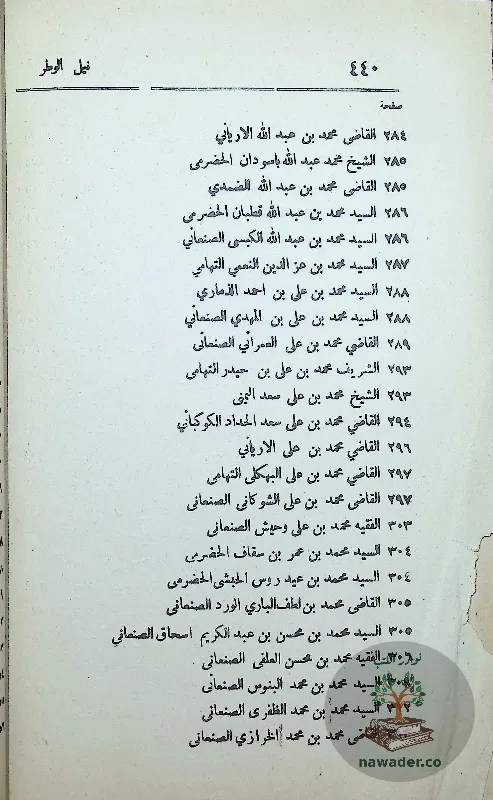 ٤٤٠ نيل الوطر
صفحة
٢٨٤ القاضى محمد بن عبد الله الاريانى
٢٨٥ الشيخ محمد عبد الله باسودان الحضرمى
٢٨٥ القاضى محمد بن عبد الله الضمدي
٢٨٦ السيد محمد بن عبد الله قطبان الحضرمى
٢٨٦ السيد محمد بن عبد الله الكبسى الصنعاني
٢٨٧ السيد محمد بن عز الدين النعمي التهامي
٢٨٨ السيد محمد بن على بن احمد الذماري
٢٨٨ السيد محمد بن على بن المهدي الصنعاني
٢٨٩ القاضي محمد بن على العمرانى الصنعانى
٢٩٣ الشريف محمد بن على بن حيدر التهامى
٢٩٣ الشيخ محمد بن على سعد اليمنى
٢٩٤ القاضي محمد بن على سعد الحداد الكوكباني
٢٩٦ القاضى محمد بن على الاريانى
٢٩٧ القاضي محمد بن على البهكلى التهامى
٢٩٧ القاضى محمد بن على الشوكانى الصنعانى
٣٠٣ الفقيه محمد بن على وحيش الصنعانى
٣٠٤ السيد محمد بن عمر بن سقاف الحضرمى
٣٠٤ السيد محمد بن عيد روس الحبشى الحضرمى
٣٠٥ القاضى محمد بن لطف البارى الورد الصنعانى
٣٠٥ السيد محمد بن محسن بن عبد الكريم اسحاق الصنعانى
٣٠٦ الفقيه محمد بن محسن العلفى الصنعانى
السيد محمد بن محمد البنوس الصنعانى
السيد محمد بن محمد الظفرى الصنعانى
القاضى محمد بن محمد الحرازي الصنعانى
nawader.co